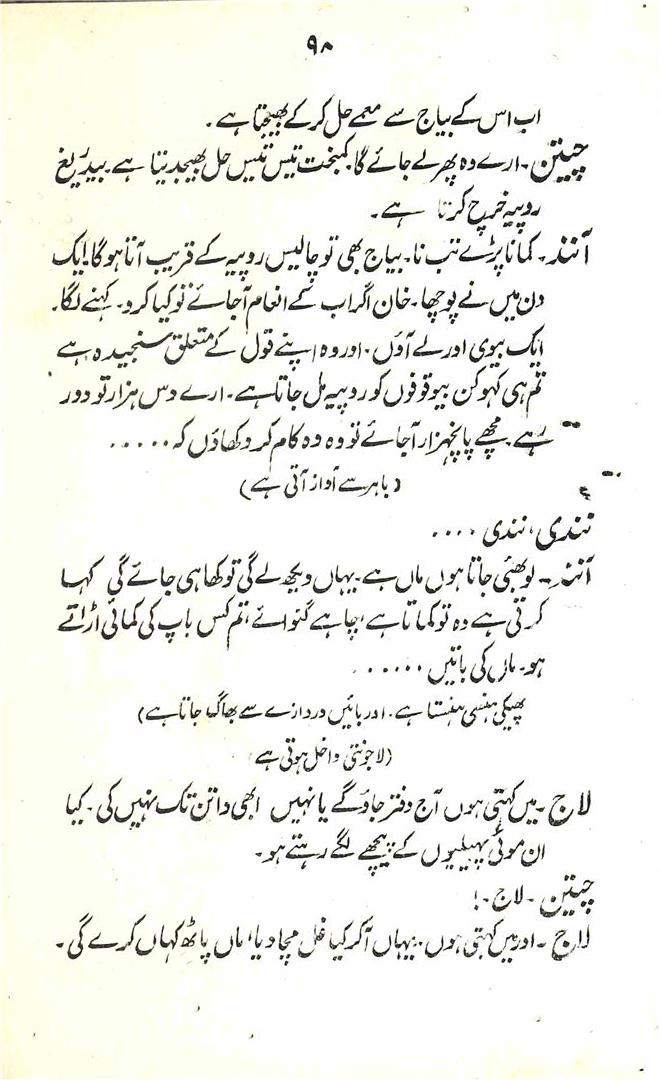 ۹۰
اب اس کے بیاج سے معمے حل کر کے بھیجتا ہے۔
چیتن۔ ارے وہ پھر لے جائے گا۔ کمبخت تیس تیس حل بھیجدیتا ہے۔ بیدریغ
روپیہ خرچ کرتا ہے۔
آنند۔ کمانا پڑے تب نا۔ بیاج بھی تو چالیس روپیہ کے قریب آتا ہوگا۔ ایک
دن میں نے پوچھا۔ خان اگر اب کے انعام آجائے تو کیا کرو۔ کہنے لگا۔
ایک بیوی اور لے آؤں۔ اور وہ اپنے قول کے متعلق سنجیدہ ہے
تم ہی کہو کن بیوقوفوں کو روپیہ مل جاتا ہے۔ ارے دس ہزار تو دور
رہے۔ مجھے پانچہزار آجائے تو وہ وہ کام کر دکھاؤں کہ ۔۔۔۔۔
(باہر سے آواز آتی ہے)
نندی، نندی ۔۔۔۔
آنند۔ لو بھئی جاتا ہوں ماں ہے۔ یہاں دیکھ لے گی تو کھا ہی جائے گی کہا
کرتی ہے وہ تو کماتا ہے، چاہے گنوائے، تم کس باپ کی کمائی اڑاتے
ہو۔ ماں کی باتیں ۔۔۔۔۔۔
پھیکی ہنسی ہنستا ہے۔ اور بائیں دروازے سے بھاگ جاتا ہے)
(لاجونتی داخل ہوتی ہے)
لاج۔ میں کہتی ہوں آج دفتر جاؤ گے یا نہیں ابھی داتن تک نہیں کی۔ کیا
ان موئی پہیلیوں کے پیچھے لگے رہتے ہو۔
چیتن۔ لاج۔!
لاج۔ اور میں کہتی ہوں۔ یہاں آ کر کیا غل مچا دیا، ماں پاٹھ کہاں کرے گی۔